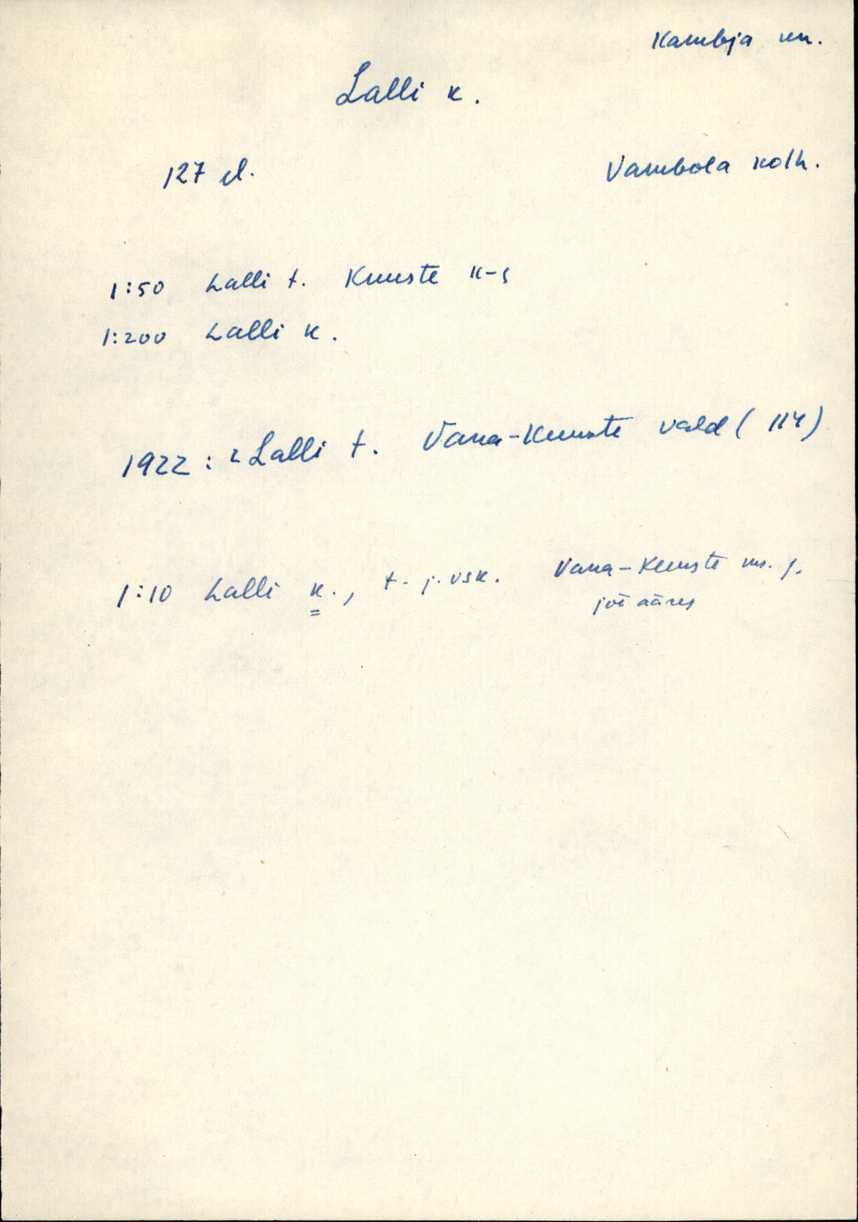 Kambja kn.
Lalli k.
127 el.
Vambola kolh.
1:50 Lalli t. Kuuste k-s
1:200 Lalli k.
1922: Lalli t. Vana-Kuuste vald (114)
1:10 Lalli k., t. j. vsk. Vana-Kuuste
jõe ääres